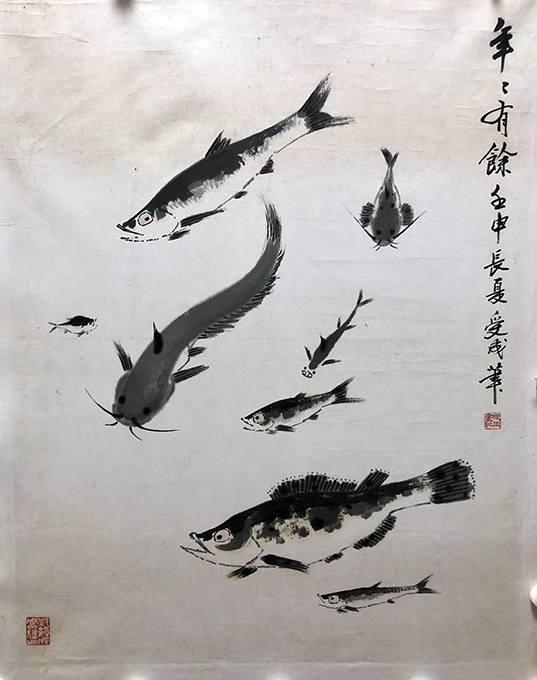 年〻有餘壬申長夏受成筆